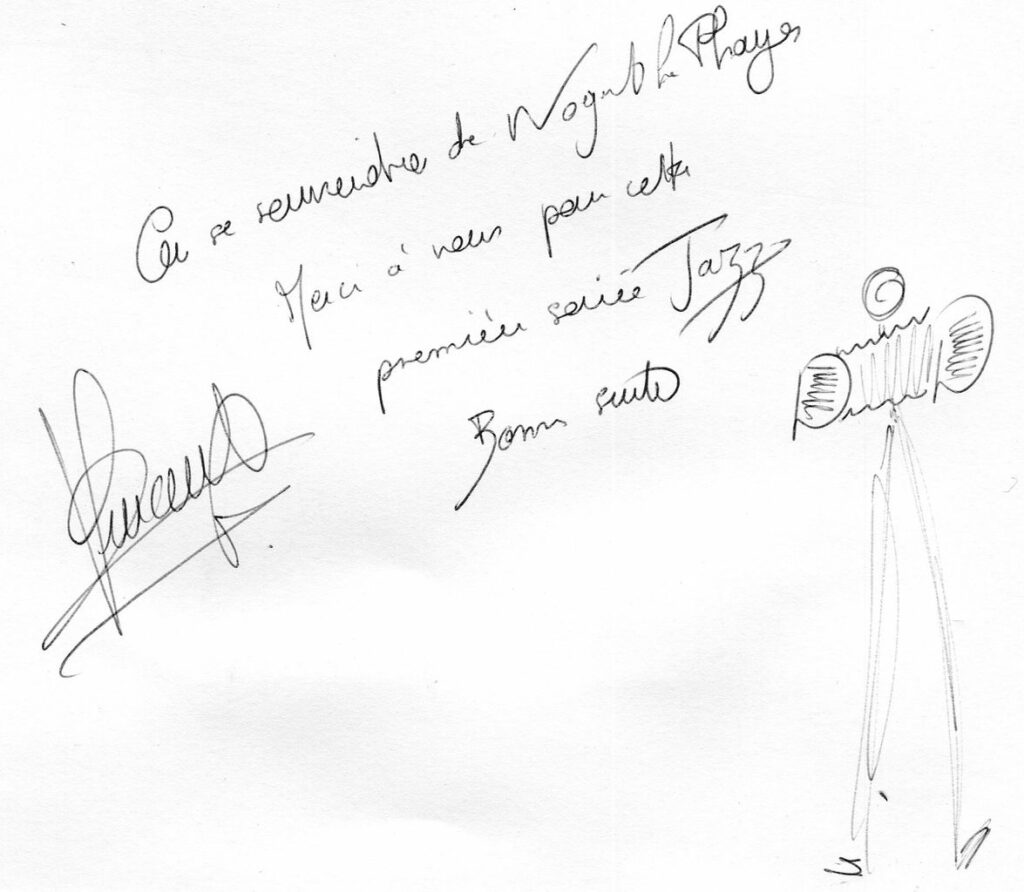 On se souviendra de Nogent le Phaye
Merci à vous pour cette
première soirée Jazz
Bonne suite